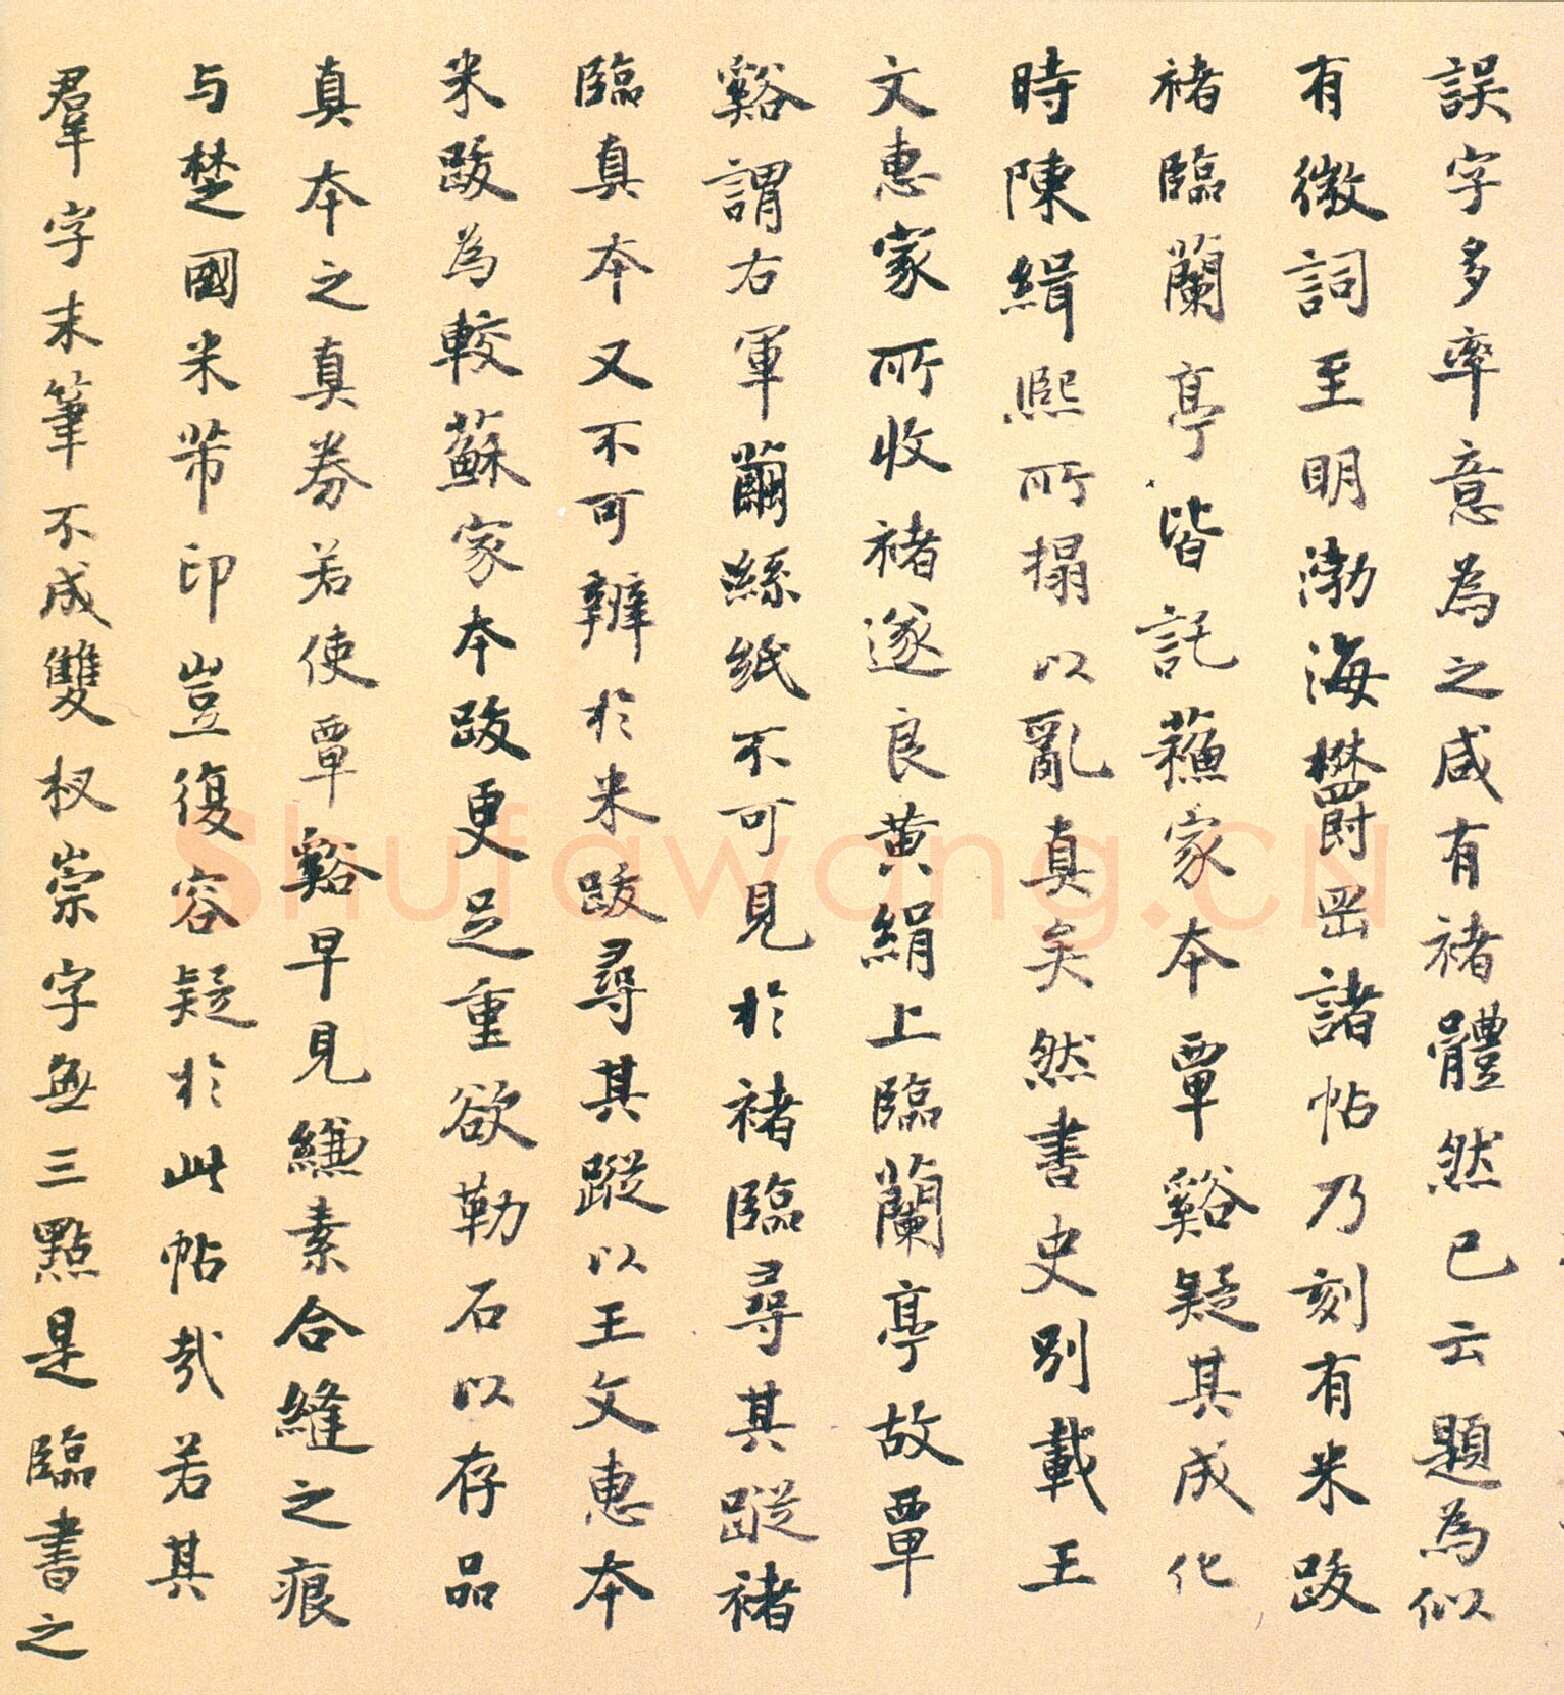 誤字多率意為之咸有褚體然已云題為似
有微詞至明渤海欝岡諸帖乃刻有米跋
褚臨蘭亭皆託蘓家本覃谿疑其成化
時陳緝熙所搨以亂真矣然書史別載王
文惠家所收褚遂良黄絹上臨蘭亭故覃
谿謂右軍繭絲紙不可見於褚臨尋其蹤褚
臨真本又不可辨於米跋尋其蹤以王文惠本
米跋為較蘇家本跋更足重欲勒石以存品
真本之真券若使覃谿早見縑素合縫之痕
与楚國米芾印豈復容疑於此帖哉若其
羣字末筆不成雙杈崇字無三點是臨書之
Shufawang.CN